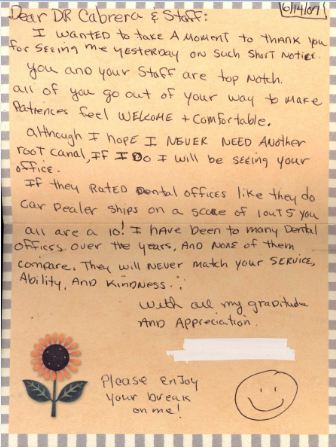 6/14/07
Dear DR Cabrera & Staff:
I WANTED to take A MOMENT to THANK you
for SEEING me YESTERDAY ON SUCH SHORT Notice.
you AND your STAFF are top Notch.
all of you go out of your WAY to MAKE
Patiences feel WELCOME + Comfortable.
although I hope I NEVER NEED ANother
root CANAL, IF I DO I will be SEEING your
office.
If they RATED Dental offices like they do
Car Dealer Ships on a scale of 1out5 you
all are a 10! I HAVE been to MANY Dental
Offices over the years, AND NONE of them
compare. They will NEVER match your SERVICE,
Ability, AND KINDNESS.
With all my gratitude
AND Appreciation.
Please ENJOY
your break
on me!